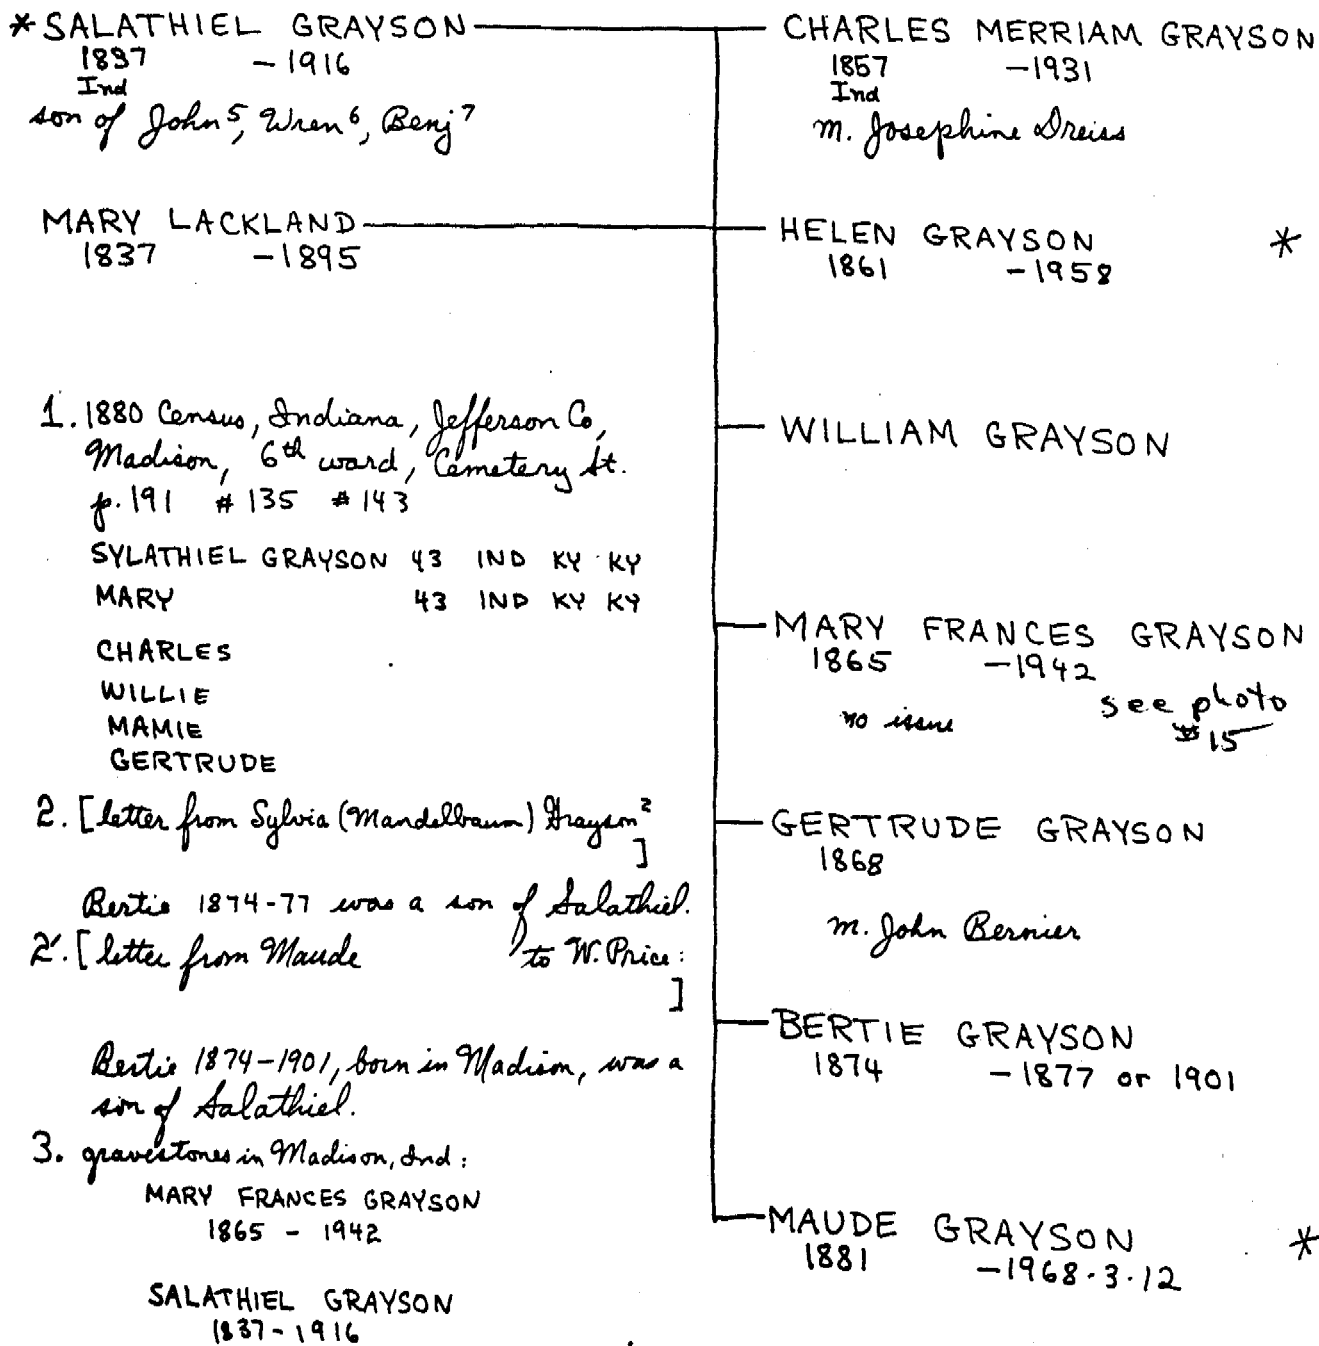 *SALATHIEL GRAYSON
1837 -1916
Ind
son of John⁵, Wren⁶, Benj⁷
MARY LACKLAND
1837 -1895
1. 1880 Census, Indiana, Jefferson Co,
Madison, 6th ward, Cemetery St.
p. 191 #135 #143
SYLATHIEL GRAYSON 43 IND KY KY
MARY 43 IND KY KY
CHARLES
WILLIE
MAMIE
GERTRUDE
2. [letter from Sylvia (Mandelbaum) Grayson²
]
Bertie 1874-77 was a son of Salathiel.
2'. [letter from Maude to W. Price:
]
Bertie 1874-1901, born in Madison, was a
son of Salathiel.
3. gravestones in Madison, Ind:
MARY FRANCES GRAYSON
1865 - 1942
SALATHIEL GRAYSON
1837-1916
CHARLES MERRIAM GRAYSON
1857 -1931
Ind
m. Josephine Dreiss
HELEN GRAYSON *
1861 -1958
WILLIAM GRAYSON
MARY FRANCES GRAYSON
1865 -1942
no issue
see photo
#15
GERTRUDE GRAYSON
1868
m. John Bernier
BERTIE GRAYSON
1874 -1877 or 1901
MAUDE GRAYSON *
1881 -1968.3.12